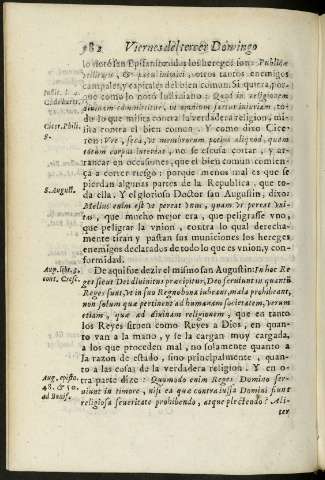 982 Viernes del tercer Domingo
lo notó san Epifanio todos los hereges son: Publice
, & pacis inimici, otros tantos enemigos
campales, y capitales del bien comun. Si quiera, por-
que como lo notó Iustiniano: Quod in religionem
diuinam committitur, in omnium fertur iniuriam, to-
do lo que milita contra la verdadera religion, mi-
lita contra el bien comun. Y como dixo Cice-
ron: Vre, seca, vt membrorum potius aliquod, quàm
totum corpus intereat, no se escusa cortar, y ar-
rancar en occasiones, que el bien comun comien-
ça a correr riesgo: porque menos mal es que se
pierdan algunas partes de la Republica, que to-
da ella. Y el glorioso Doctor san Augustin, dixo:
Melius enim est vt pereat vnus, quam vt pereat vni-
tas, que mucho mejor era, que peligrasse vno,
que peligrar la vnion, contra lo qual derecha-
mente tiran y passan sus municiones los hereges
enemigos declarados de todo lo que es vnion, y con-
formidad.
De aqui fue dezir el mismo san Augustin: In hoc Re
ges sicut Dei diuinitus præcipitur, Deo seruiunt in quantũ
Reges sunt, vt in suo Regno bona iubeant, mala prohibeant,
non solum quæ pertinent ad humanam societatem, verum
etiam, quæ ad diuinam religionem, que en tanto
los Reyes siruen como Reyes a Dios, en quan-
to van a la mano, y se la cargan muy cargada,
a los que proceden mal, no solamente quanto a
la razon de estado, sino principalmente, quan-
to a las cosas de la verdadera religion. Y en o-
tra parte dize: Quomodo enim Reges Domino ser-
uiunt in timore, nisi ea quæ contra iussa Domini fiunt
religiosa seueritate prohibendo, atque plectendo? Ali-
ter
Iustit. l. 4.
Cicer. Phili.
8.
S. August.
Aug. libr. 3.
cont. Cresc.
Aug. episto.
48. & 50.
ad Bonif.